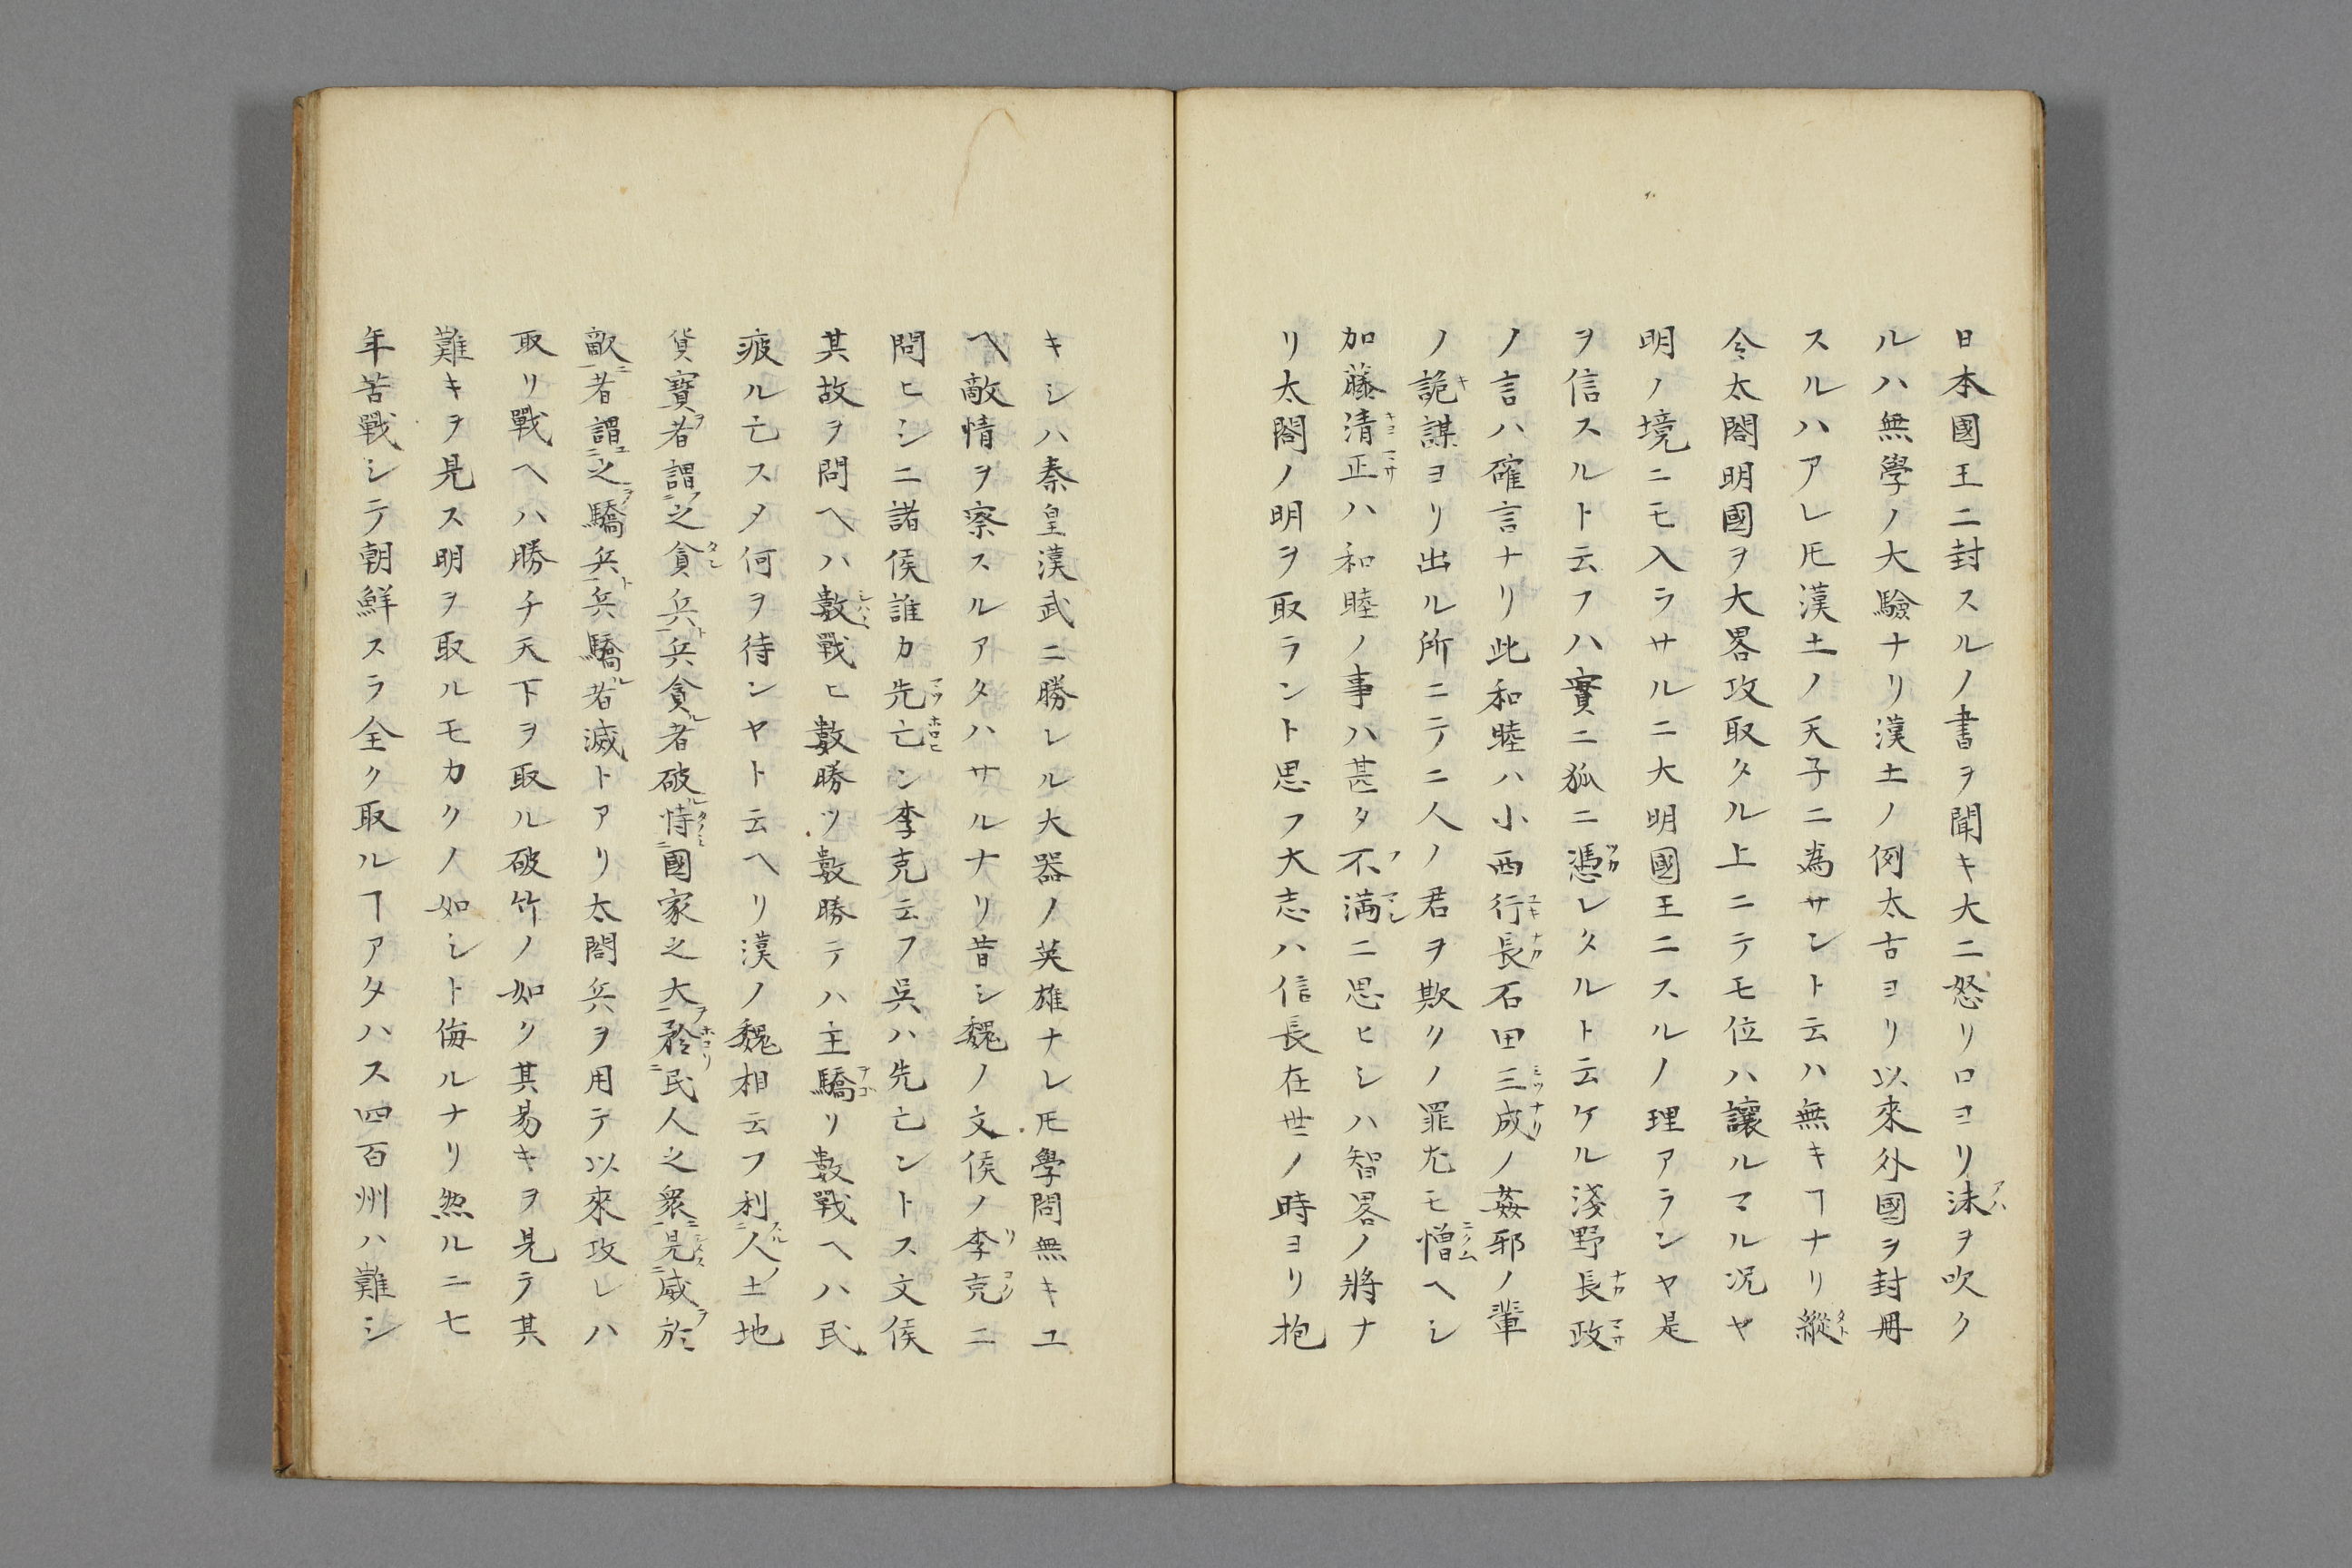 日本國王ニ封スルノ書ヲ聞キ大ニ怒リロヨリ沫ヲ吹ク
ルハ無學ノ大驗ナリ漢土ノ例太古ヨリ以來外國ヲ封冊
スルハアレ𪜈漢土ノ天子ニ為サント云ハ無キヿナリ縱
令太閤明國ヲ大畧攻取タル上ニテモ位ハ讓ルマル况ヤ
明ノ境ニモ入ラサルニ大明國王ニスルノ理アランヤ是
ヲ信スルト云フハ實ニ狐ニ憑レタルト云ケル淺野長政
ノ言ハ確言ナリ此和睦ハ小西行長石田三成ノ姦邪ノ輩
ノ詭謀ヨリ出ル所ニテ二人ノ君ヲ欺クノ罪尤モ憎ヘシ
加藤清正ハ和睦ノ事ハ甚タ不満ニ思ヒシハ智畧ノ將ナ
リ太閤ノ明ヲ取ラント思フ大志ハ信長在世ノ時ヨリ抱
キシハ秦皇漢武ニ勝レル大器ノ英雄ナレ𪜈學問無キユ
ヘ敵情ヲ察スルアタハサルナリ昔シ魏ノ文侯ノ李克ニ
問ヒシニ諸侯誰カ先亡ン李克云フ呉ハ先亡ントス文侯
其故ヲ問ヘハ數戰ヒ數勝ツ數勝テハ主驕リ數戰ヘハ民
疲ル亡スメ何ヲ待ンヤト云ヘリ漢ノ魏相云フ利人土地
貨寳者謂之貪兵兵貪者破恃國家之大矜民人之衆見威於
敵者謂之驕兵兵驕者滅トアリ太閤兵ヲ用テ以來攻レハ
取リ戰ヘハ勝チ天下ヲ取ル破竹ノ如ク其易キヲ見テ其
難キヲ見ス明ヲ取ルモカクノ如シト侮ルナリ然ルニ七
年苦戰シテ朝鮮スラ全ク取ルヿアタハス四百州ハ難シ